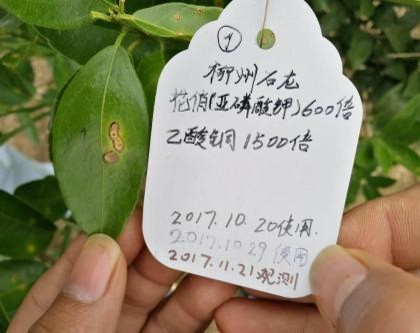 ①
柳州石龙
花俏(亚磷酸钾)600倍
乙酸铜1500倍
2017.10.20使用.
2017.10.29使用
2017.11.21观测